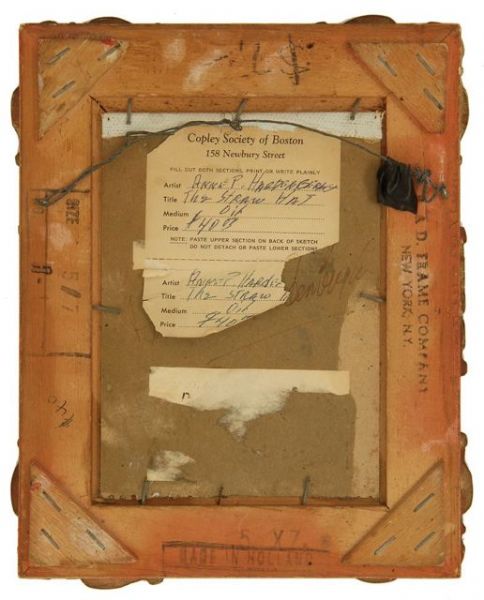 Copley Society of Boston
158 Newbury Street
FILL OUT BOTH SECTIONS, PRINT OR WRITE PLAINLY
Artist ANNE P. HARDENBERGH
Title The STRAW HAT
Medium Oil
Price $40.00
NOTE: PASTE UPPER SECTION ON BACK OF SKETCH
DO NOT DETACH OR PASTE LOWER SECTION
Artist ANNE P. HARDEN
Title The STRAW
Medium Oil
Price $40.00
A D. FRAME COMPANY
NEW YORK, N.Y.
SIZE
$40
5 X 7
MADE IN HOLLAND